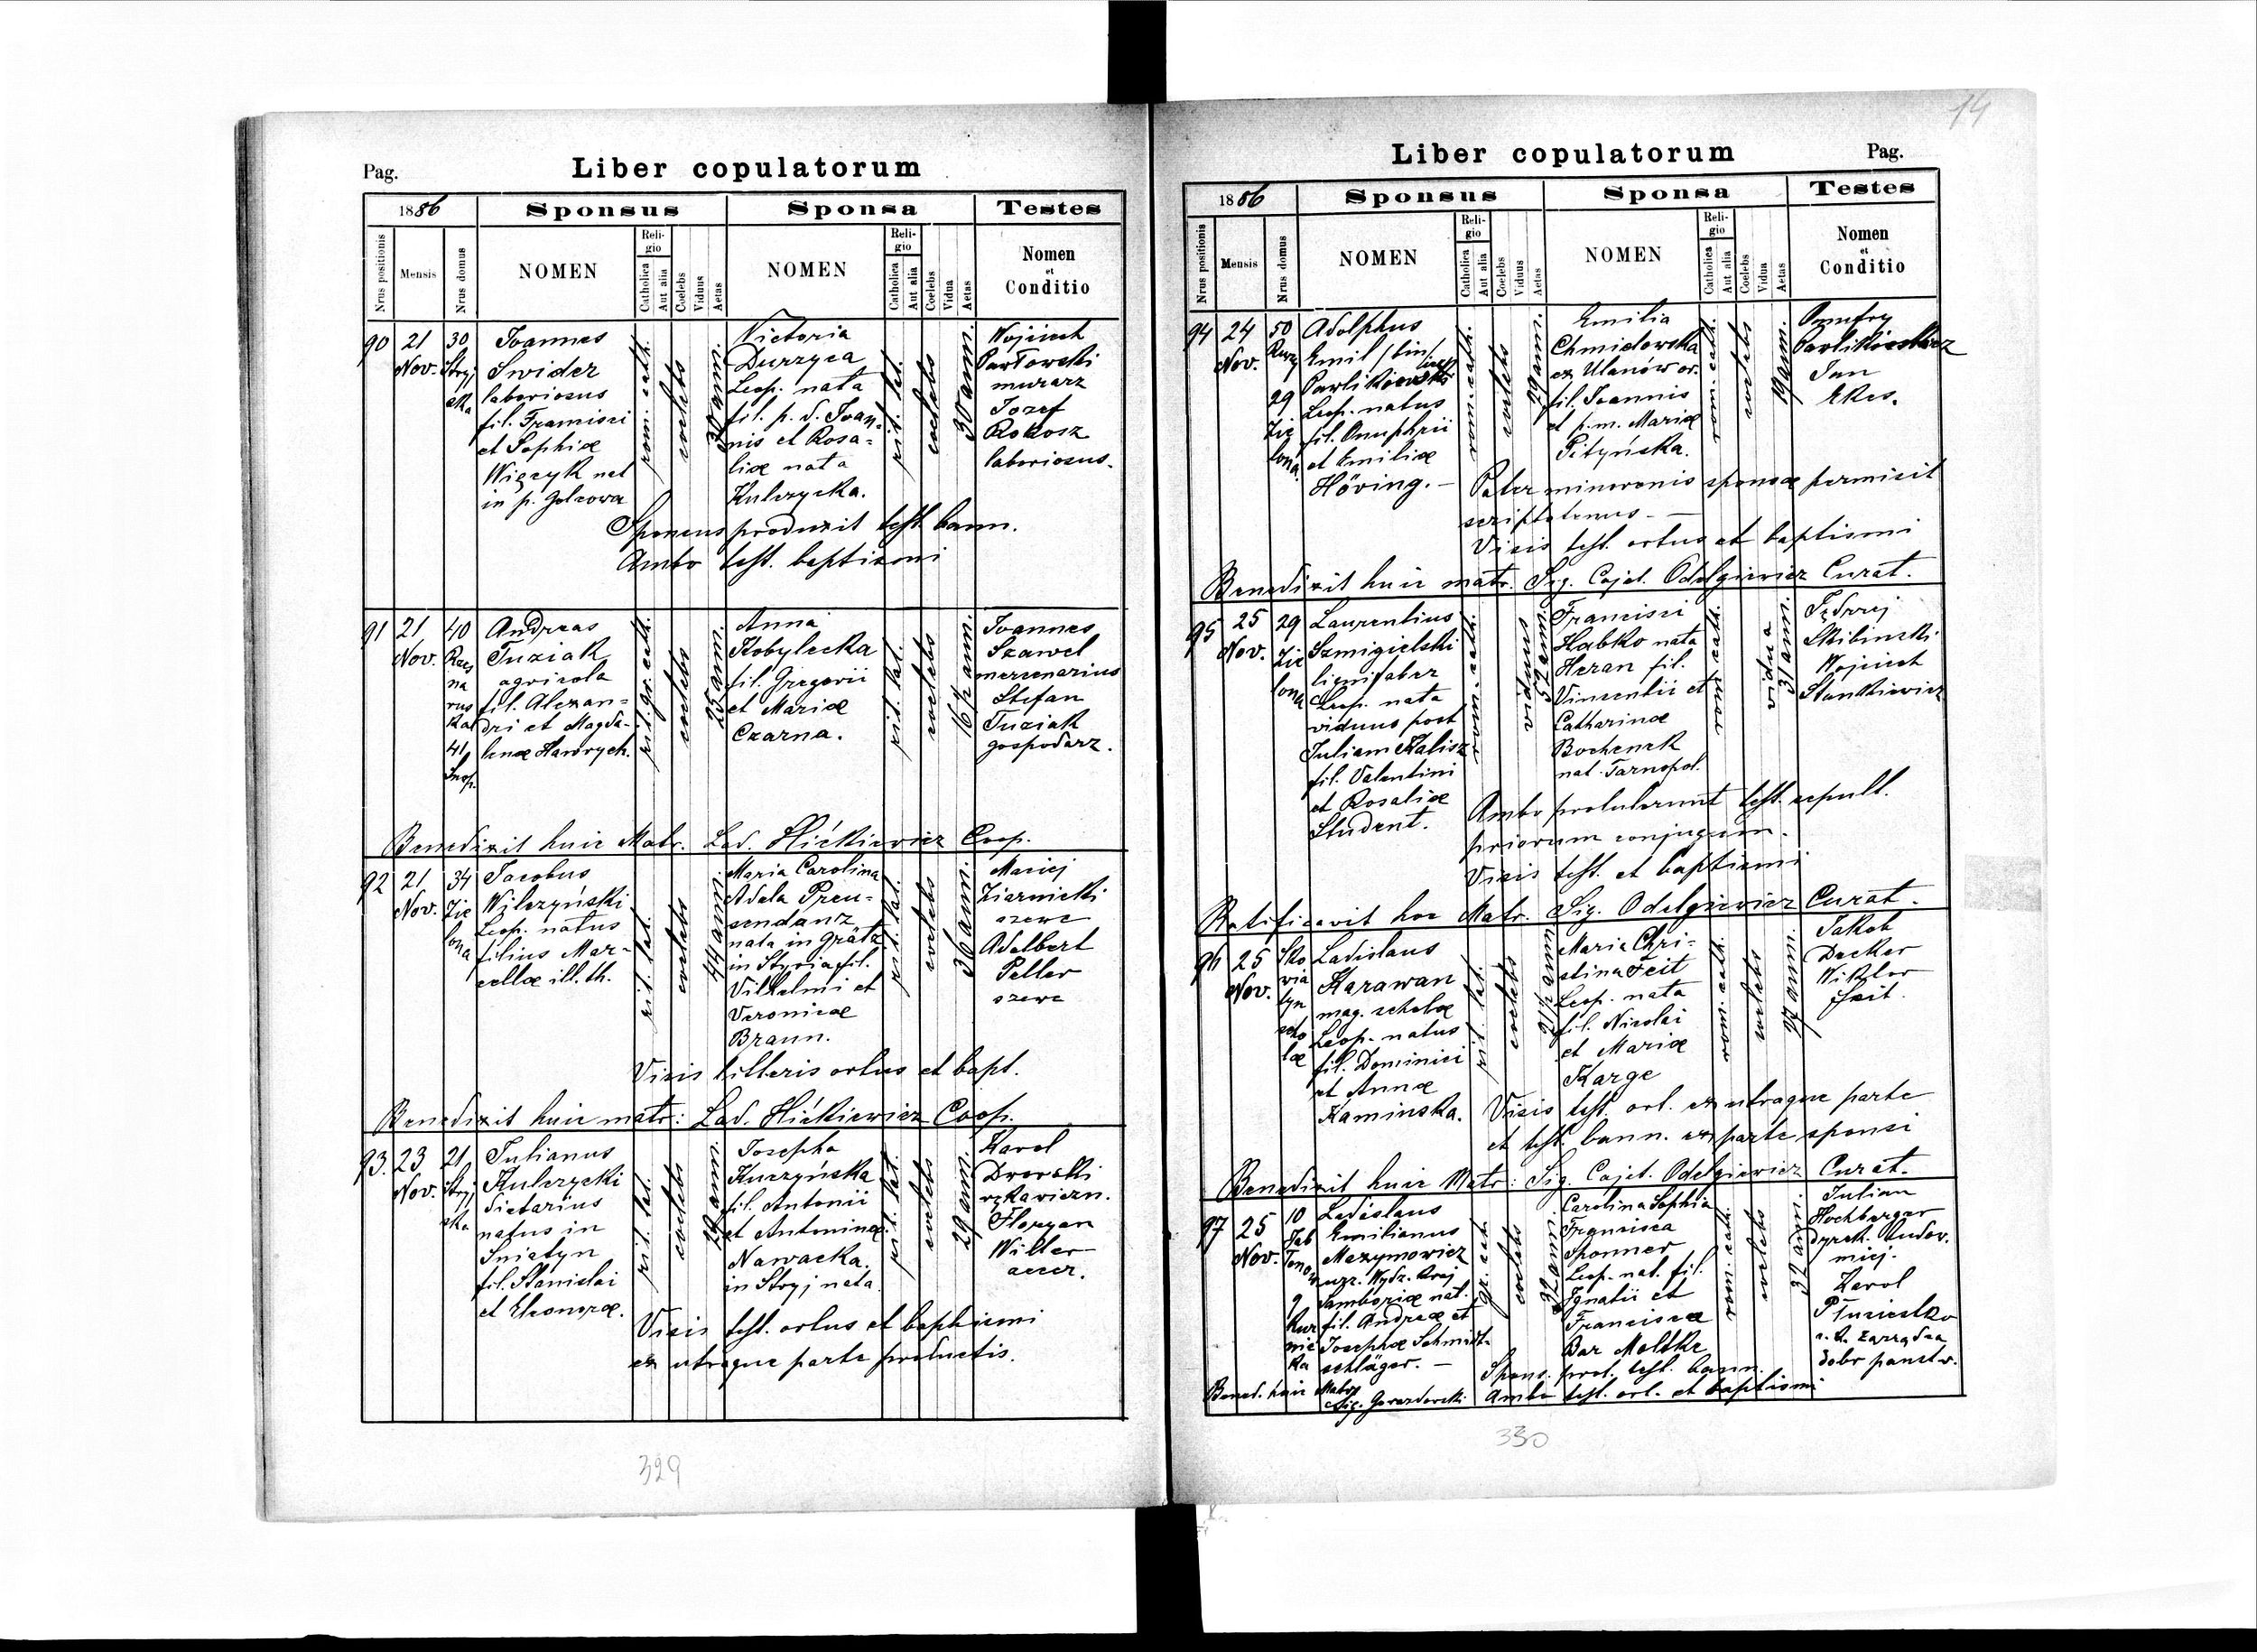 14
Pag.
Liber copulatorum
1886
Sponsus
Sponsa
Testes
Nrus positionis
Mensis
Nrus domus
NOMEN
Religio
Catholica
Aut alia
Coelebs
Viduus
Aetas
NOMEN
Religio
Catholica
Aut alia
Coelebs
Vidua
Aetas
Nomen
et
Conditio
90
21
Nov.
30
Stryj
ska
Joannes
Swider
laboriosus
fil. Francisci
et Sophiæ
Więzyk nat
in p. Golcowa
rom. cath.
coelebs
30 ann.
Victoria
Durzyca
Leop. nata
fil. p. d. Joan-
nis et Rosa-
liæ nata
Kulczycka.
rit. lat.
coelebs
30 ann.
Wojciech
Pawłowski
murarz
Jozef
Rokosz
laboriosus.
Sponsus produxit test. bann.
Ambo test. baptismi
91
21
Nov.
40
Rzes
na
rus
ka
41
Leop.
Andreas
Tuziak
agricola
fil. Alexan-
dri et Magda-
lenæ Hawrych.
rit. gr. cath.
coelebs
25 ann.
Anna
Kobylecka
fil. Gregorii
et Mariæ
Czarna.
rit. lat.
coelebs
16 1/2 ann.
Joannes
Szawel
mercenarius
Stefan
Tuziak
gospodarz.
Benedixit huic Matr. Lad. Hićkiewicz Coop.
92
21
Nov.
34
Zie
lona
Jacobus
Wilczyński
Leop. natus
filius Mar-
cellæ ill. th.
rit. lat.
coelebs
44 ann.
Maria Carolina
Adela Preu-
sendanz
nata in Grätz
in Styria fil.
Vilhelmi et
Veronicæ
Braun.
rit. lat.
coelebs
36 ann.
Maciej
Ziarnicki
szewc
Adalbert
Peller
szewc
Visis litteris ortus et bapt.
Benedixit huic matr: Lad. Hićkiewicz Coop.
93.
23
Nov.
21
Stryj
ska
Julianus
Kulczycki
dietarius
natus in
Sniatyn
fil. Stanislai
et Eleonoræ.
rit. lat.
coelebs
29 ann.
Josepha
Kurzyńska
fil. Antonii
et Antoninæ
Nawacka.
in Stryj nata
rit. lat.
coelebs
29 ann.
Karol
Dworski
rękawiczn.
Floryan
Willer-
Visis test. ortus et baptismi
ex utraque parte productis.
329
Liber copulatorum
Pag.
1886
Sponsus
Sponsa
Testes
Nrus positionis
Mensis
Nrus domus
NOMEN
Religio
Catholica
Aut alia
Coelebs
Viduus
Aetas
NOMEN
Religio
Catholica
Aut alia
Coelebs
Vidua
Aetas
Nomen
et
Conditio
94
24
Nov.
50
29
Zie
lona
Adolphus
Emil /bin/
Leop. natus
fil. Onuphrii
et Emiliæ
Höving. –
rom. cath.
coelebs
29 ann.
Emilia
Chmielowska
ex Ulanów or.
fil. Joannis
et p. m. Mariæ
Pityńska.
rom. cath.
coelebs
19 ann.
Jan
Ekes.
Pater minorenis sponsæ permisit
scriptotenus. –
Visis test. ortus et baptismi
Benedixit huic matr. Sig. Cajet. Odelgiewicz Curat.
95
25
Nov.
29
Zie
lona
Laurentius
Szmigielski
lignifaber
Leop. nata
viduus post
Juliam Kalisz
fil. Valentini
et Rosaliæ
Student.
rom. cath.
viduus
Francisci
Habko nata
Heran fil.
Vincentii et
Catharinæ
Bochenek
nat. Tarnopol.
rom. cath.
vidua
31 ann.
Jędrzej
Skibinski
Wojciech
Stankiewicz
Ambo protulerunt test. sepult.
priorum conjugum.
Visis test. et baptismi
Ratificavit hoc Matr. Sig. Odelgiewicz Curat.
96
25
Nov.
Sko
wia
tyn
scho
læ
Ladislaus
Karawan
mag. scholæ
Leop. natus
fil. Dominici
et Annæ
Kaminska.
rit. lat.
coelebs
31 1/2 ann.
Maria Chri-
stina Feit
Leop. nata
fil. Nicolai
et Mariæ
Karge
rom. cath.
coelebs
27 ann.
Jakob
Decker
Wiktor
Feit.
Visis test. ort. ex utraque parte
et test. bann. ex parte sponsi
Benedixit huic Matr: Sig. Cajet. Odelgiewicz Curat.
97
25
Nov.
10
Jab
łonow
9
Kur
nic
ka
Ladislaus
Emilianus
Mazymowicz
urz. Wydz. Kraj
Samboriæ nat.
fil. Andreæ et
Josephæ Schmidt-
schläger. –
gr. cat.
coelebs
32 ann.
Carolina Sophia
Francisca
Sponner
Leop. nat. fil.
Ignatii et
Franciscæ
Bar Moltke
rom. cath.
coelebs
32 ann.
Julian
Hochberger
dyrek. budow.
miej.
Karol
c. k. zarządca
dobr panstw.
Spons. prot. test. bann.
Ambo test. ort. et baptismi
Bened. huic Matr.
Sig. Gorazdowski
330